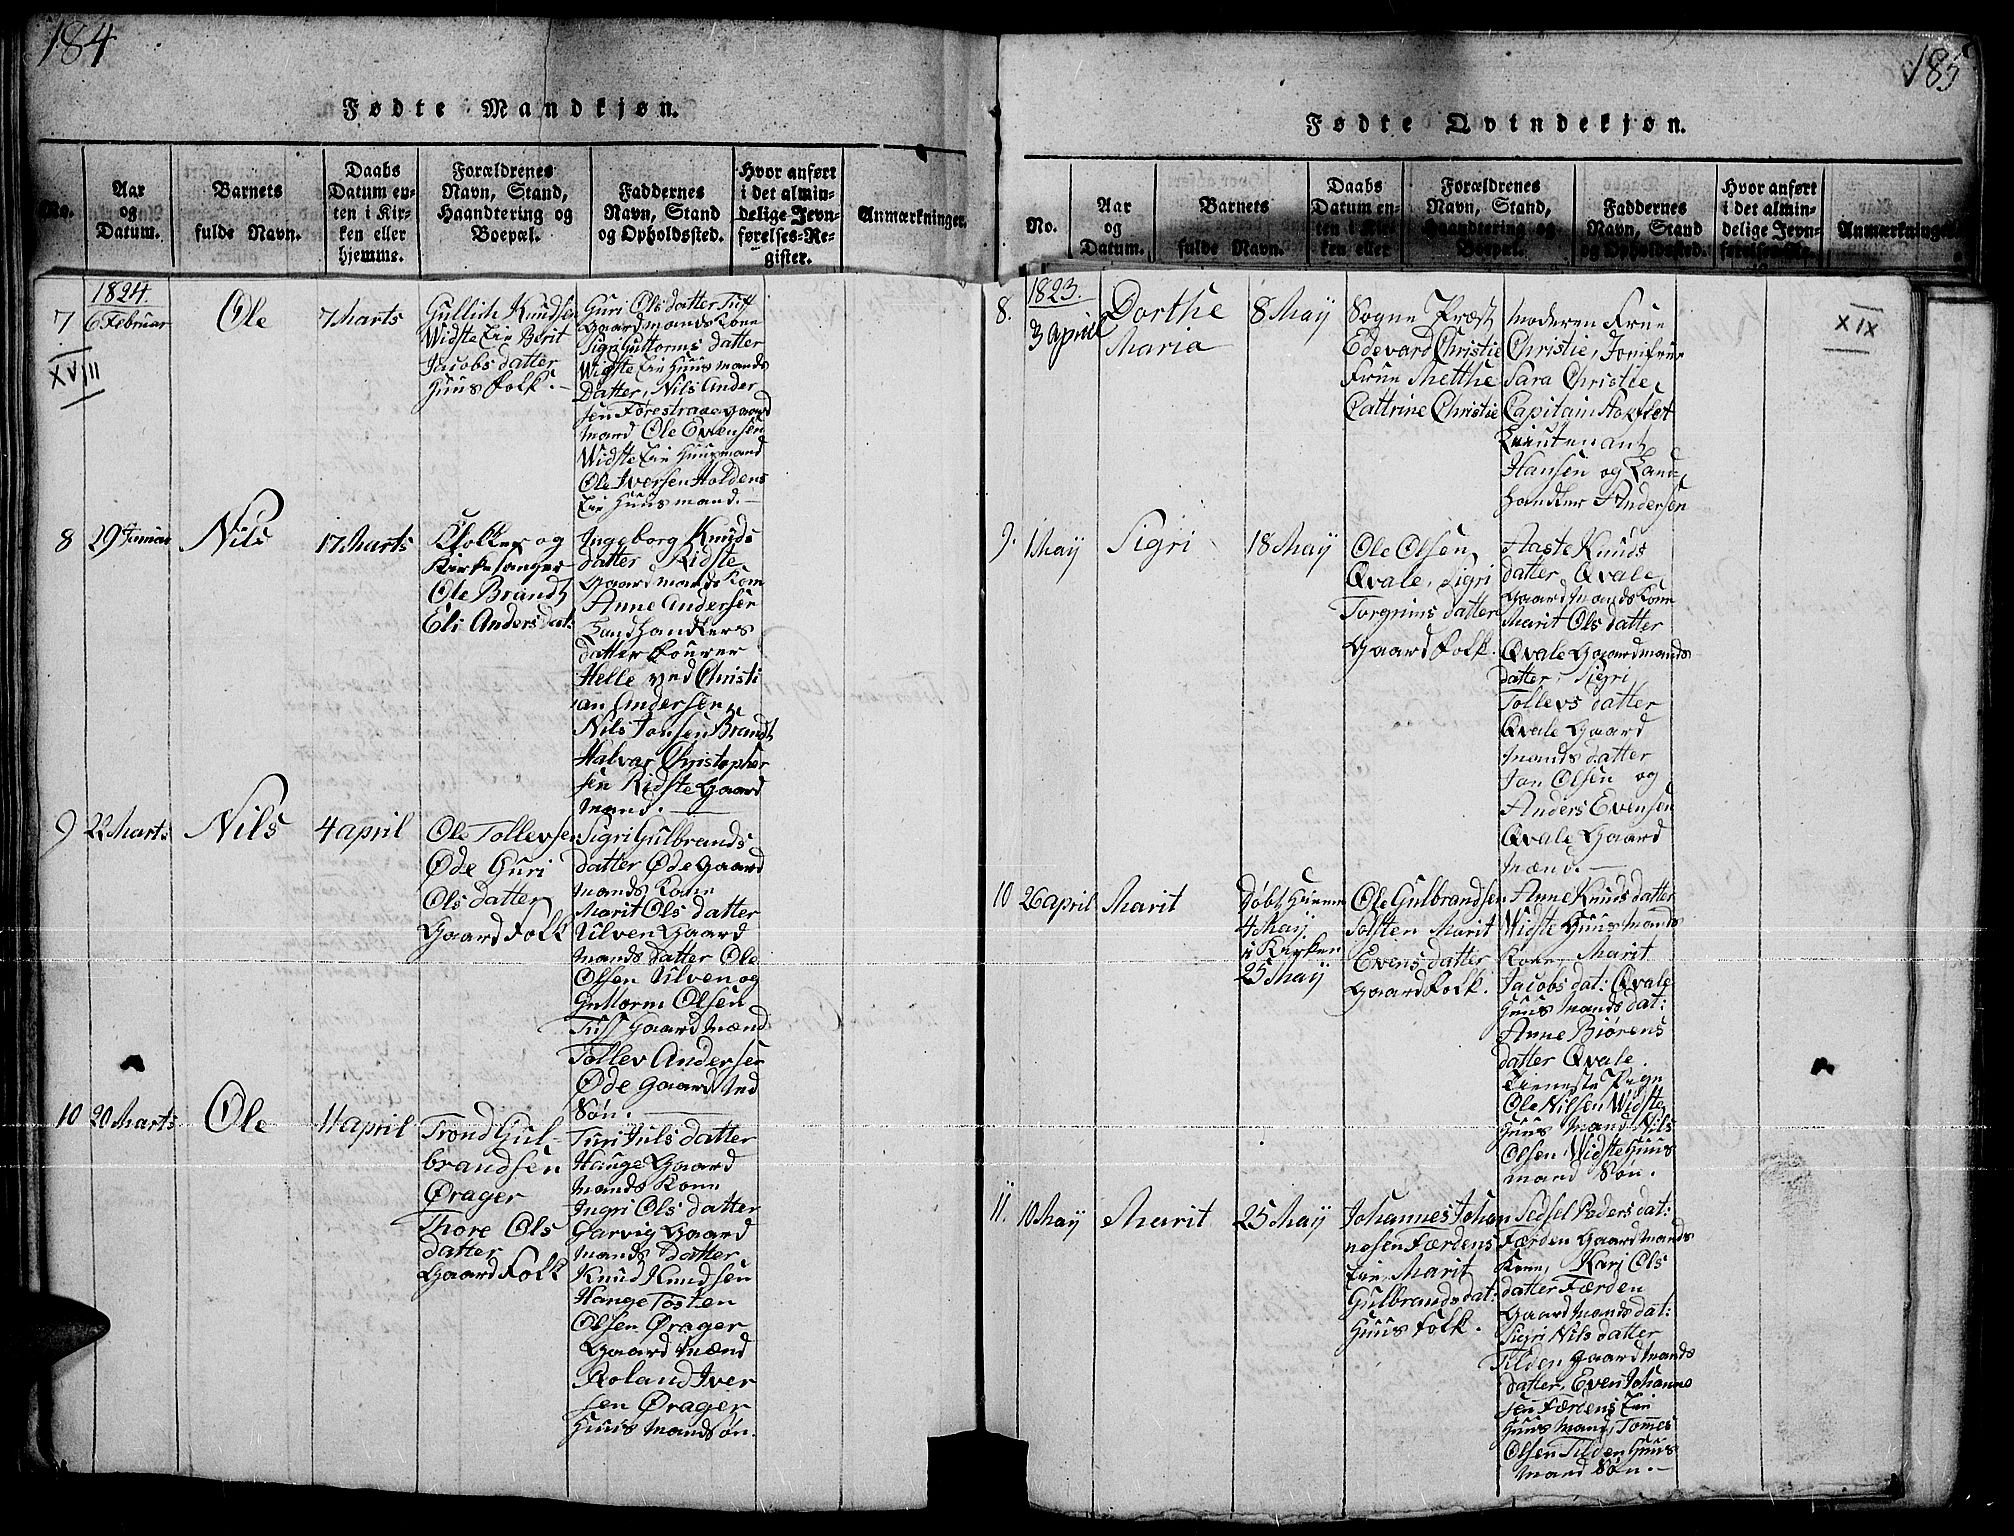 184
Fødte Mandkjøn.
No.
Aar
og
Datum.
Barnets
fulde Navn.
Daabs
Datum en-
ten i Kir-
ken eller
hjemme.
Forældrenes
Navn, Stand,
Haandtering og
Boepæl.
Faddernes
Navn, Stand
og Opholdssted.
Hvor anført
i det almin-
delige Jevn-
førelses-Re-
gister.
Anmærkninger.
1824.
7
6 Februar
XVIII
Ole
7 Marts
Gullich Knudsen
Widste Eie Berit
Jacobs datter
Huus folk.
Guri Ols datter Tuff
Gaardmands Kone
Sigri Guttorms datter
Widste Eie Huusmands
Datter, Nils Ander
sen Forestraae gaard
mand Ole Evensen
Widste Eie Huusmand
Ole Iversen Holdens
Eie Huusmand.
8
29 Januar
Nils
17 Marts
Klokker og
Kirkesanger
Ole Brandt
Eli Anders dat:
Ingeborg Knuds
datter Ridste
Gaardmands Kone
Anne Andersen
Handhandlers
datter
Helle ved Christi
an Andersen,
Nils Jonsen Brandt
Halvar Christopher
sen Ridste Gaard
mand.
9
22 Marts
Nils
4 april
Ole Tollevsen
Øde Guri
Ols datter
Gaard Folk
Sigri Gulbrands
datter Øde Gaard
mands Kone
Marit Ols datter
Ulven Gaard
mands datter Ole
Olsen Ulven og
Guttorm Olsen
Tuff Gaard Mænd
Tollev Andersen
Øde Gaard
Søn.
10
20 Marts
Ole
11 april
Trond Gul-
brandsen
Ørager
Thore Ols
datter
Gaard Folk
Turi Juls datter
Hauge Gaard
mands Kone
Ingri Ols datter
Garvig Gaard
mands datter
Knud Knudsen
Hauge Tosten
Olsen Ørager
Gaard Mænd
Roland Iver
sen Ørager
Huus Mandsøn.
185
Fødte Qvindekjøn.
No.
Aar
og
Datum.
Barnets
fulde Navn.
Daabs
Datum en-
ten i Kir-
ken eller
Forældrenes
Navn, Stand,
Haandtering og
Boepæl.
Faddernes
Navn, Stand
og Opholdssted.
Hvor anført
i det almin-
delige Jevn-
førelses-Re-
Anmærkninger
1823.
8.
3 April
Dorthe
Maria
8 May
Sogne Præst
Edevard Christie
Frue Metthe
Cattrine Christie
Moderen Frue
Christie, Jomfrue
Sara Christie,
Capitain Stokflet
Leiutenant
Hansen og Land-
handler Andersen
XIX
9.
1 May
Sigri
18 May
Ole Olsen
Qvale, Sigri
Torgrims datter
Gaard Folk.
Aaste Knuds
datter Qvale
Gaard Mands Kone
Marit Ols datter
Qvale Gaardmands
datter, Sigri
Tollevs datter
Qvale Gaard
mands datter
Jon Olsen og
Anders Evensen
Qvale Gaard
Mænd.
10
26 april
Marit
Døbt Hiemme
4 May
i Kirken
25 May
Ole Gulbrandsen
Solsten Marit
Evens datter
Gaard Folk.
Anne Knuds datter
Widste Huus Mands
Kone, Marit
Jacobs dat: Qvale
Huus Mands dat:
Anne Biørens
datter Qvale
Tieneste Pige
Ole Nilsen Widste
Huus Mand, Nils
Olsen Widste Huus
mand Søn.
11.
10 May
Marit
25 May
Johannes Johan
nesen Færdens
Eie, Marit
Gulbrands dat:
Huus Folk.
Sedsel Peders dat:
Færden Gaard Mands
Kone, Kari Ols
datter Færden
Gaard Mands dat:
Sigri Nils datter
Tilden Gaard Mands
datter, Even Johanne
sen Færdens Eie
Huus Mand, Tomes
Olsen Tilden Huus
Mand Søn.